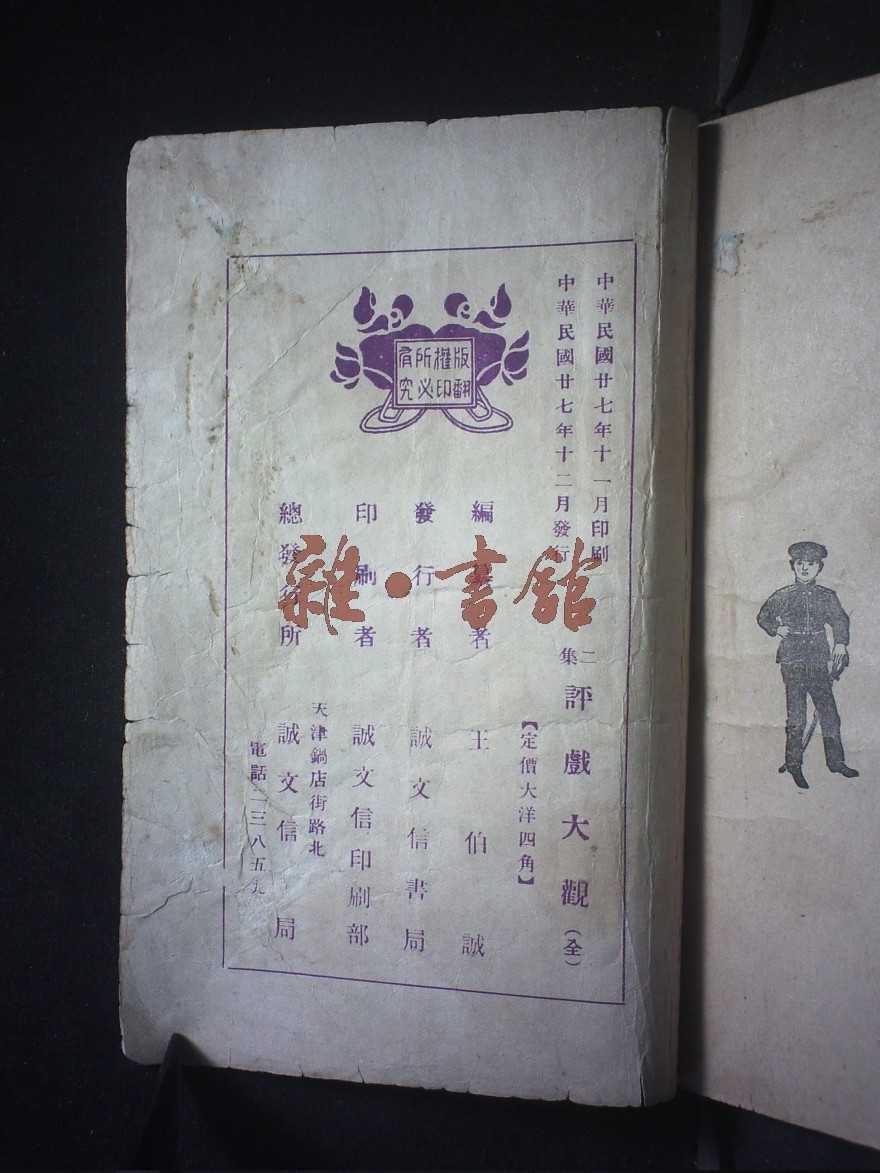 中華民國廿七年十一月印刷
中華民國廿七年十二月發行
二集 評戲大觀（全）
【定價大洋四角】
版權所有
翻印必究
編纂者 王伯誠
發行者 誠文信書局
印刷者 誠文信印刷部
天津鍋店街路北
總發行所 誠文信局
電話二三八五九
雜·書館